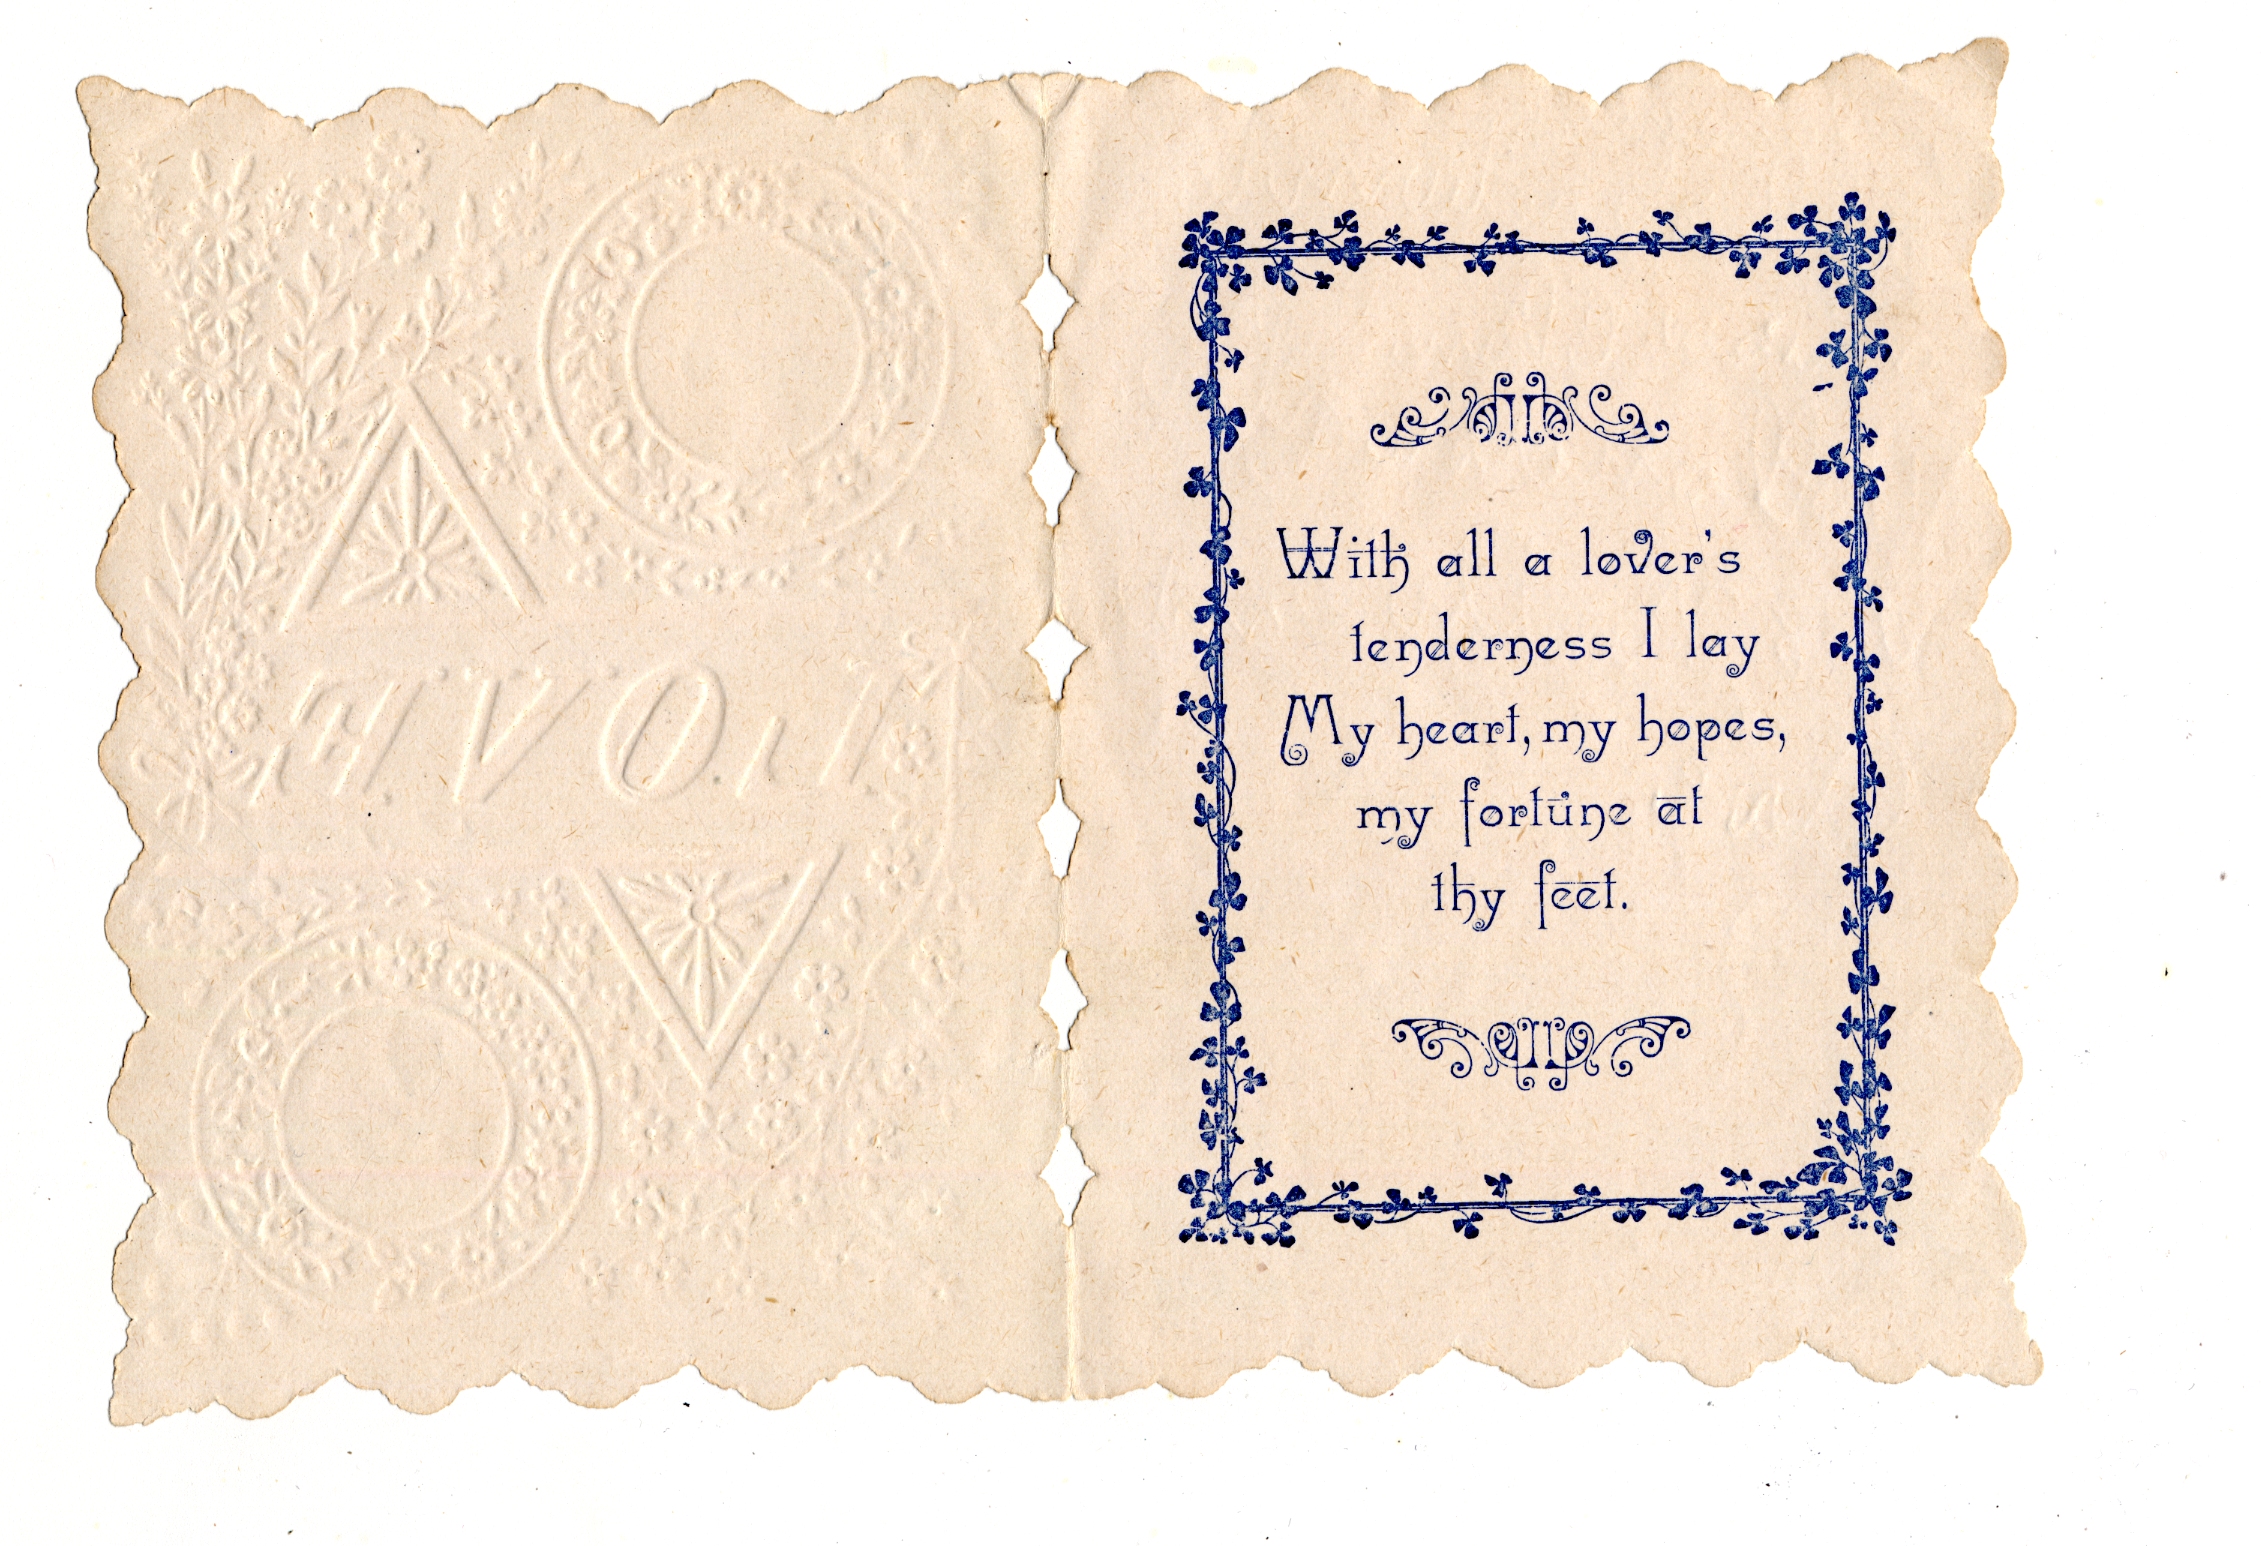 With all a lover's
tenderness I lay
My heart, my hopes,
my fortune at
thy feet.